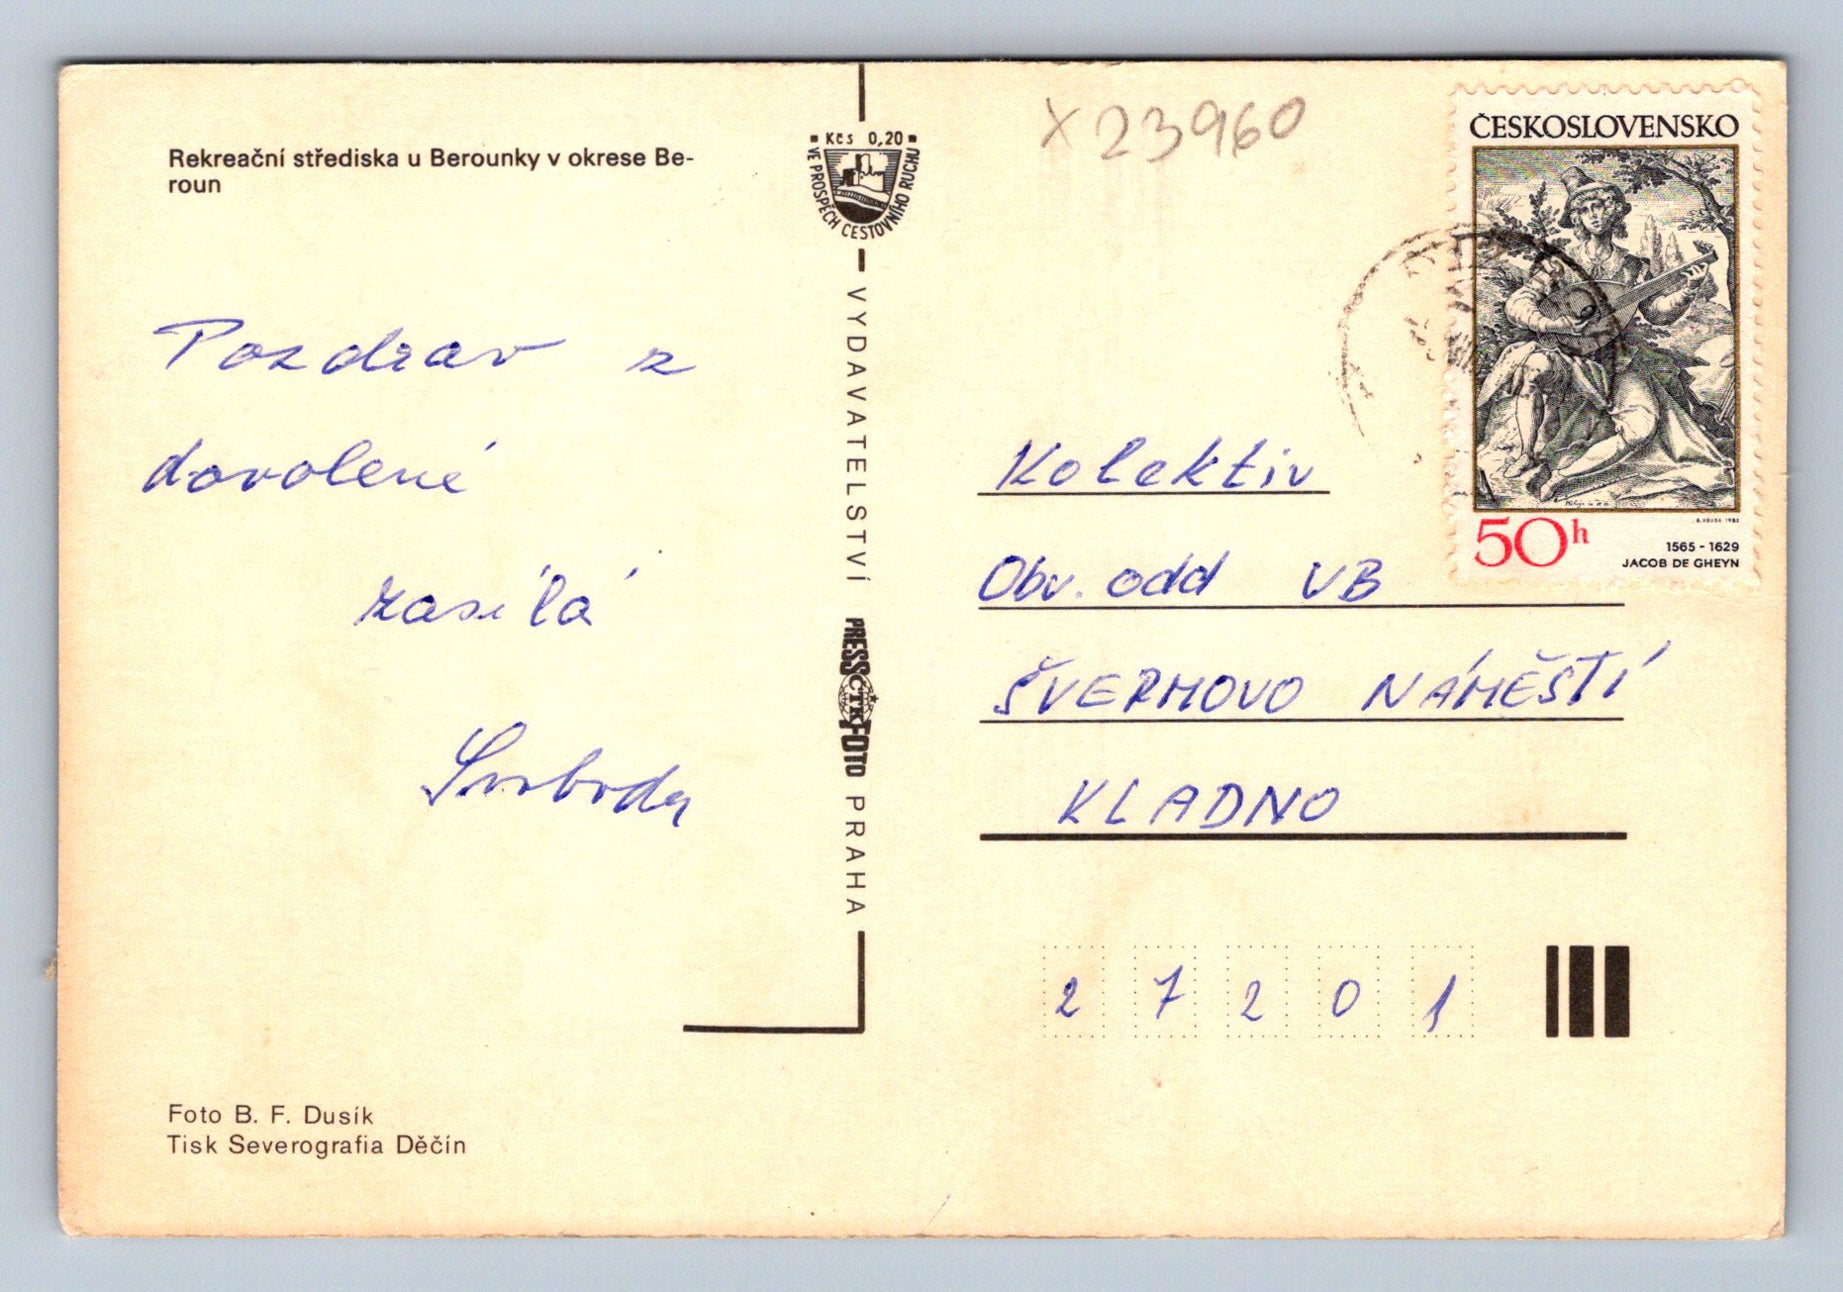 Rekreační střediska u Berounky v okrese Be-
roun
Pozdrav z
dovolené
zasílá
Svoboda
Foto B. F. Dusík
Tisk Severografia Děčín
Kčs 0,20
VE PROSPĚCH CESTOVNÍHO RUCHU
VYDAVATELSTVÍ PRESSFOTO PRAHA
ČTK
X 23960
ČESKOSLOVENSKO
50h
1565 - 1629
JACOB DE GHEYN
Kolektiv
Obv. odd VB
ŠVERMOVO NÁMĚSTÍ
KLADNO
2 7 2 0 1